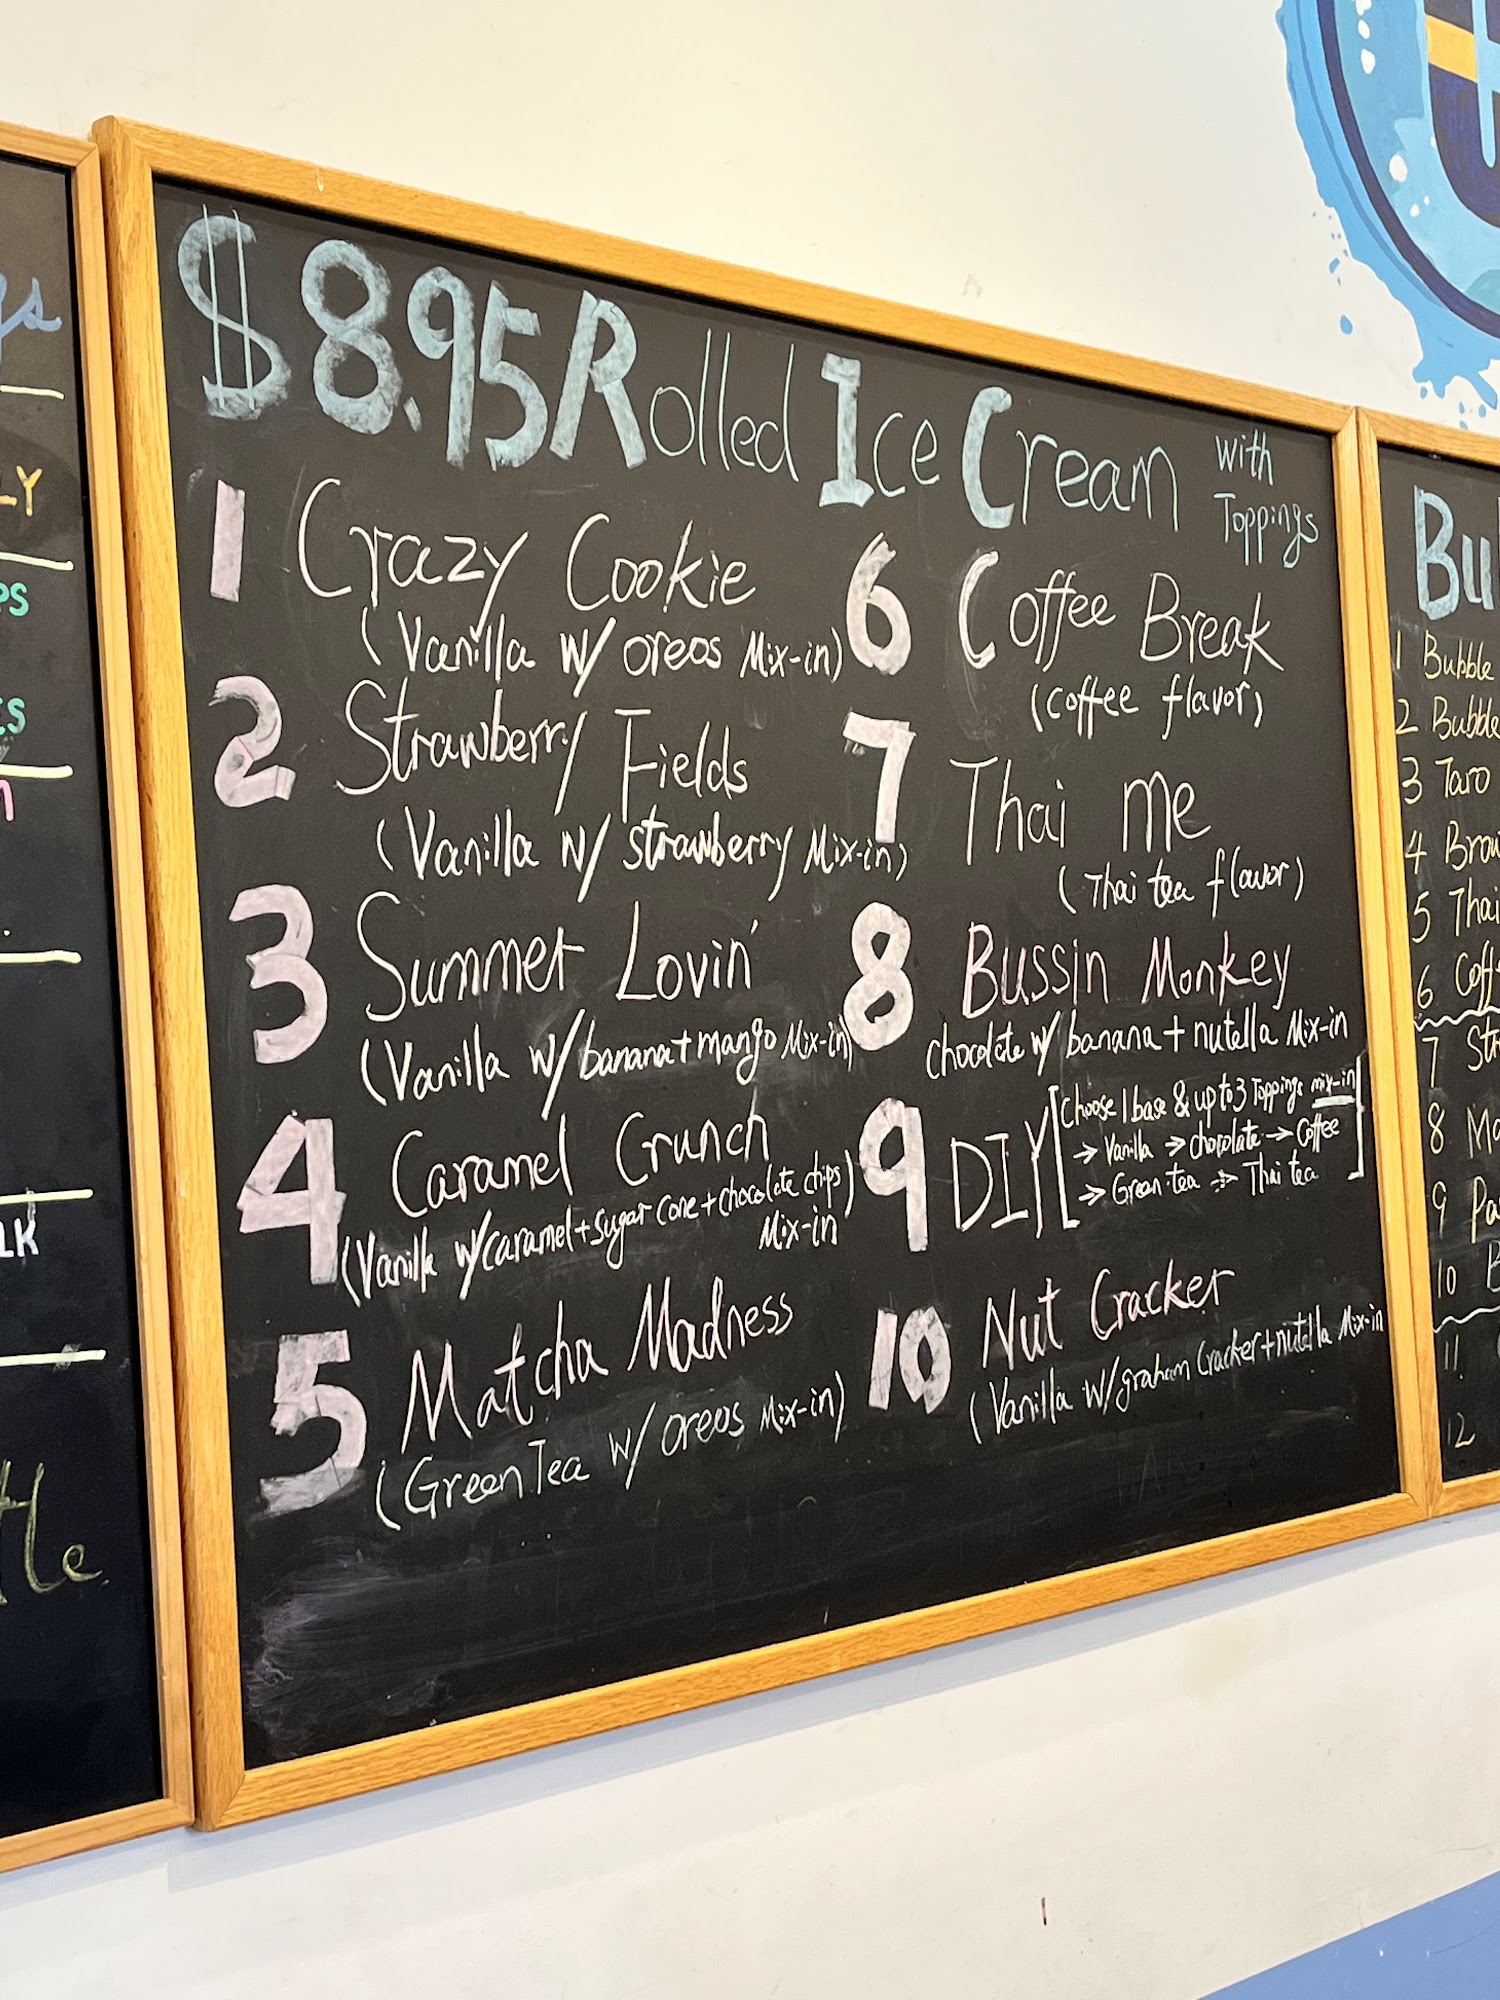 $8.95 Rolled Ice Cream with Toppings
1 Crazy Cookie
(Vanilla w/ oreos Mix-in)
2 Strawberry Fields
(Vanilla w/ strawberry Mix-in)
3 Summer Lovin'
(Vanilla w/ banana+mango Mix-in)
4 Caramel Crunch
(Vanilla w/caramel+sugar cone+chocolate chips)
Mix-in
5 Matcha Madness
(Green Tea w/ oreos Mix-in)
6 Coffee Break
(coffee flavor)
7 Thai me
(Thai tea flavor)
8 Bussin Monkey
chocolate w/ banana + nutella Mix-in
9 DIY [Choose 1 base & up to 3 Toppings mix-in
→ Vanilla → chocolate → Coffee
→ Green tea → Thai tea]
10 Nut Cracker
(Vanilla w/graham Cracker+nutella Mix-in
LY
PS
ES
LK
Bu
1 Bubble
2 Bubble
3 Taro
4 Brow
5 Thai
6 Coff
7 Str
8 Ma
9 Pa
10 B
11
12